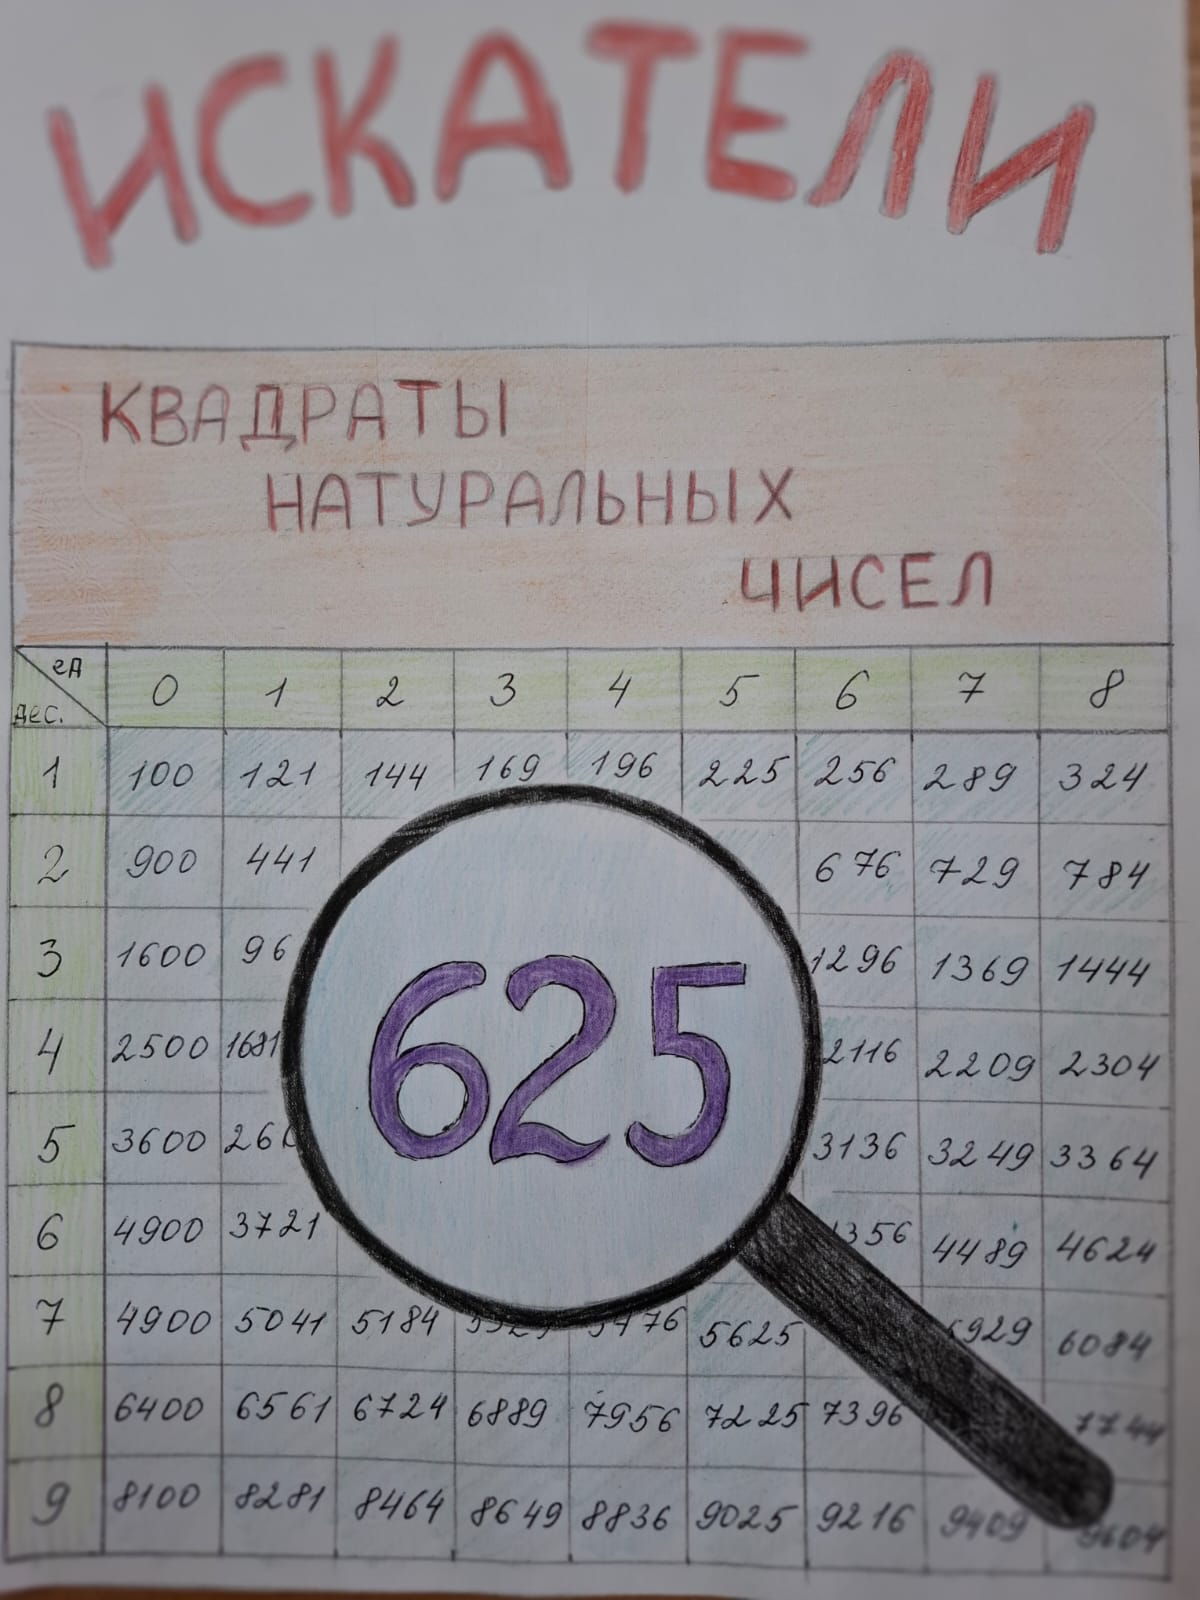 ИСКАТЕЛИ
КВАДРАТЫ
НАТУРАЛЬНЫХ
ЧИСЕЛ
ед
дес. 0 1 2 3 4 5 6 7 8
1 100 121 144 169 196 225 256 289 324
2 900 441 676 729 784
3 1600 96 1296 1369 1444
4 2500 1681 2116 2209 2304
5 3600 3136 3249 3364
6 4900 3721 4489 4624
7 4900 5041 5184 5625 6084
8 6400 6561 6724 6889 7956 7225 7396 7744
9 8100 8281 8464 8649 8836 9025 9216 9409 9604
625